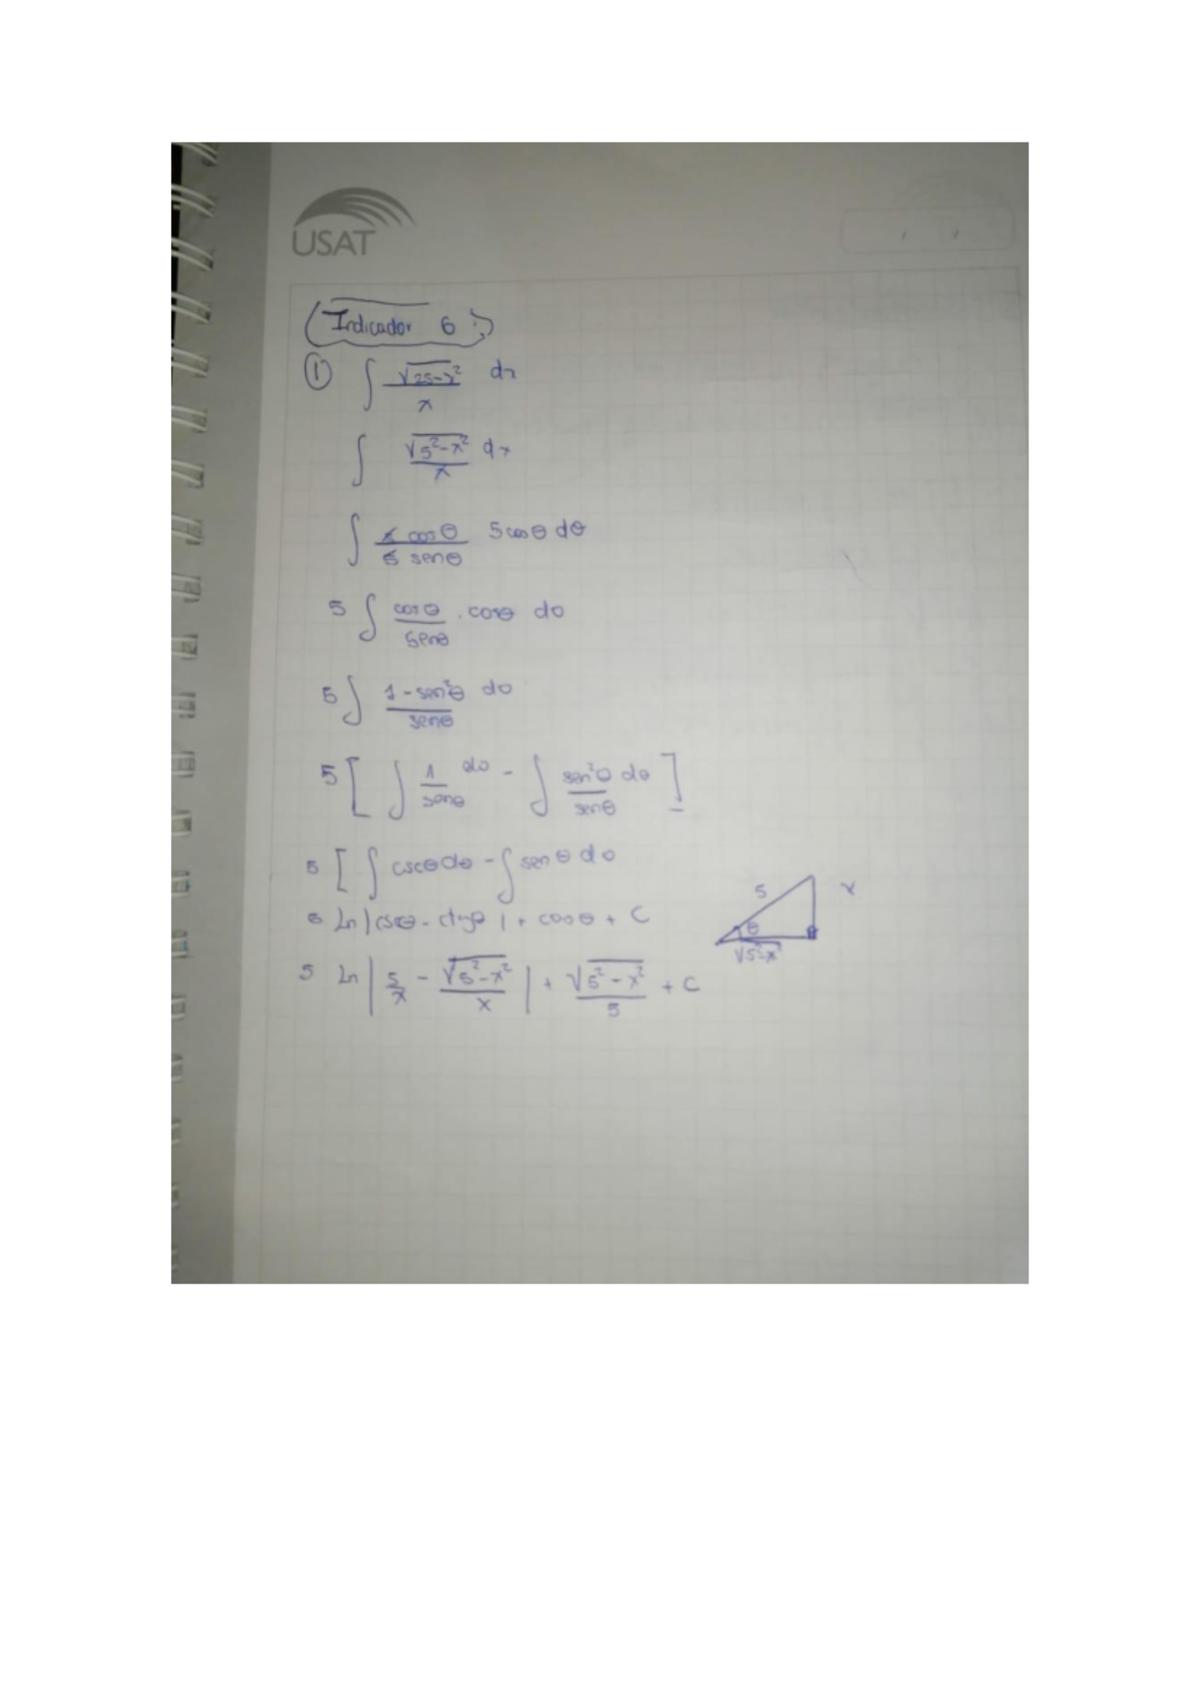 USAT
Indicador 6:
① ∫ √25-x² / x dx
∫ √5²-x² / x dx
∫ 5 cosθ / 5 senθ 5cosθ dθ
5 ∫ cosθ / senθ . cosθ dθ
5 ∫ 1-sen²θ / senθ dθ
5 [ ∫ 1 / senθ dθ - ∫ sen²θ / senθ dθ ]
5 [ ∫ cscθdθ - ∫ senθ dθ
5 Ln |cscθ - ctgθ | + cosθ + C
5 x θ √5²-x²
5 Ln | 5/x - √5²-x² / x | + √5²-x² / 5 + C